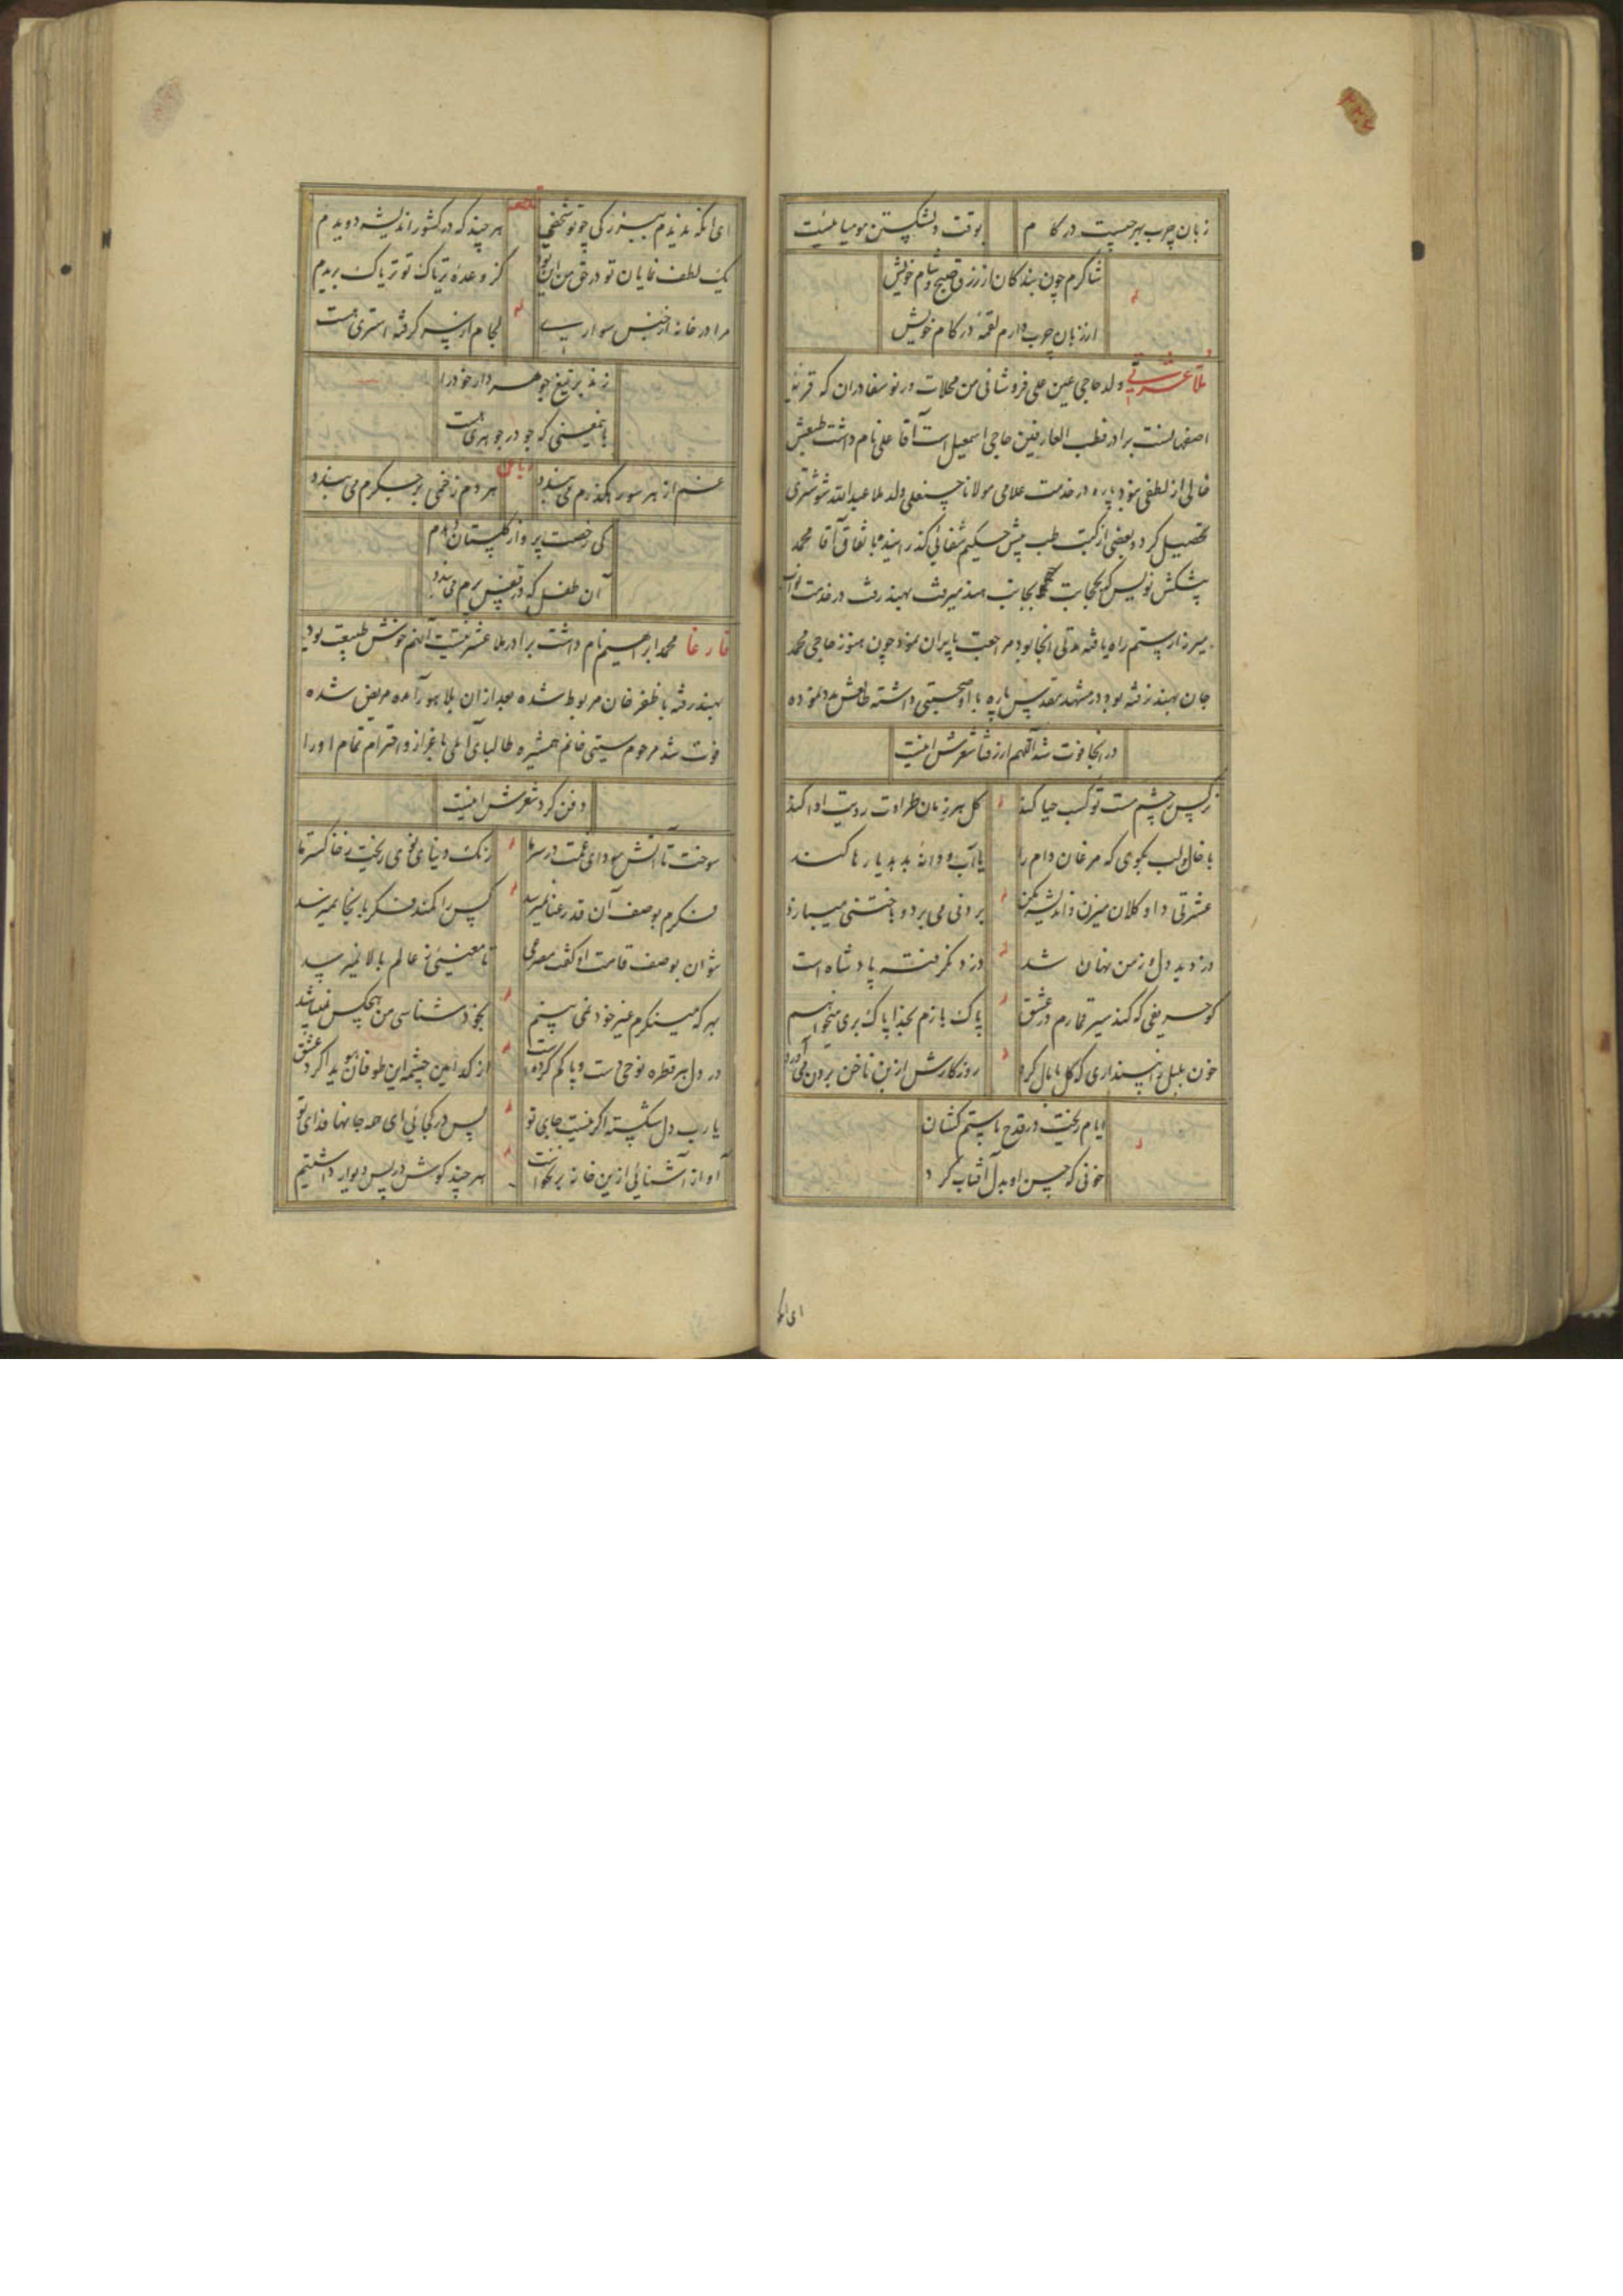 زبان چرب بهر چیست در کام
بوقت دلشکستن مومیا نیست
شاکرم چون بندکان از رزق صبح و شام خویش
از زبان چرب دارم لقمه در کام خویش
ملا عشرتی ولد حاجی عین علی فروشانی من محلات ورنوسفادران که قریه
اصفهانست برادر قطب العارفین حاجی اسمعیل است آقا علی نام داشت طبعش
خالی از لطفی نبود پاره در خدمت علامی مولانا حسنعلی ولد ملا عبدالله شوشتری
تحصیل کرد و بعضی از کتب طب پیش حکیم شفائی کذرانیده باتفاق آقا محمد
پیشکش نویس که بحجابت بجانب هند میرفت بهند رفت در خدمت نواب
میرزا رستم راه یافته مدتی آنجا بود مراجعت بایران نمود چون هنوز حاجی محمد
جان بهند نرفته بود در مشهد مقدس پاره با او صحبتی داشته
در آنجا فوت شد شعرش اینست
نرکس ز چشم مست تو کسب حیا کند
کل هر زمان طراوت رویت ادا کند
با خال لب بکوی که مرغان دام را
یا آب و دانه بدهد یا رها کند
عشرتی داو کلان میزن و اندیشه مکن
بردنی می برد و باختنی میبازد
دزدید دل و ز من نهان شد
دزد نکرفته پادشاه است
کو حریفی که کند سیر قمارم در عشق
پاک بازم بخدا پاک بری میخواهم
خون بلبل را نپنداری که کل پامال کرد
روزکارش از بن ناخن برون می آورد
ایام ریخت در قدح ما ستم کشان
خونی که حسن او بدل آفتاب کرد
ای آنکه
ای آنکه ندیدم ببزرکی چو تو شخصی
هر چند که در کشور اندیشه دویدم
یک لطف نمایان تو در حق من این بود
کز وعده تریاک تو تریاک بریدم
مرا در خانه از جنس سواری
لجام از سر کرفته استری هست
زند بر تیغ جوهردار خود را
باینمعنی که جو در جوهری هست
رباعی
غم از هر سو رهکذرم می بندد
هر دم زخمی بر جکرم می بندد
کی رخصت پرواز کلستان دهدم
آن طفل که در قفس پرم می بندد
فارغا محمد ابراهیم نام داشت برادر ملا عشرتیست آنهم خوش طبیعت بود
بهند رفته با ظفر خان مربوط شده بعد از ان بلاهور آمده مریض شده
فوت شد مرحوم ستی خانم همشیره طالبای آملی باعزاز و احترام تمام او را
دفن کرد شعرش اینست
سوخت تا آتش سودای غمت در سر ما
رنک دنیای نوی ریخت ز خاکستر ما
فکرم بوصف آن قد رعنا نمیرسد
کس را کمند فکر باینجا نمیرسد
نتوان بوصف قامت او کفت مصرعی
تا معنیی ز عالم بالا نمیرسد
بهر که مینکرم غیر خود نمی بینم
بخود شناسی من هیچکس نمیباشد
در دل هر قطره نوحی دست و پا کم کرده است
از کدامین چشمه این طوفان پدید آورد عشق
یا رب دل شکسته اکر نیست جای تو
پس در کجائی ای همه جانها فدای تو
آواز آشنائی ازین خانه بر نخواست
هر چند کوش در پس دیوار داشتیم